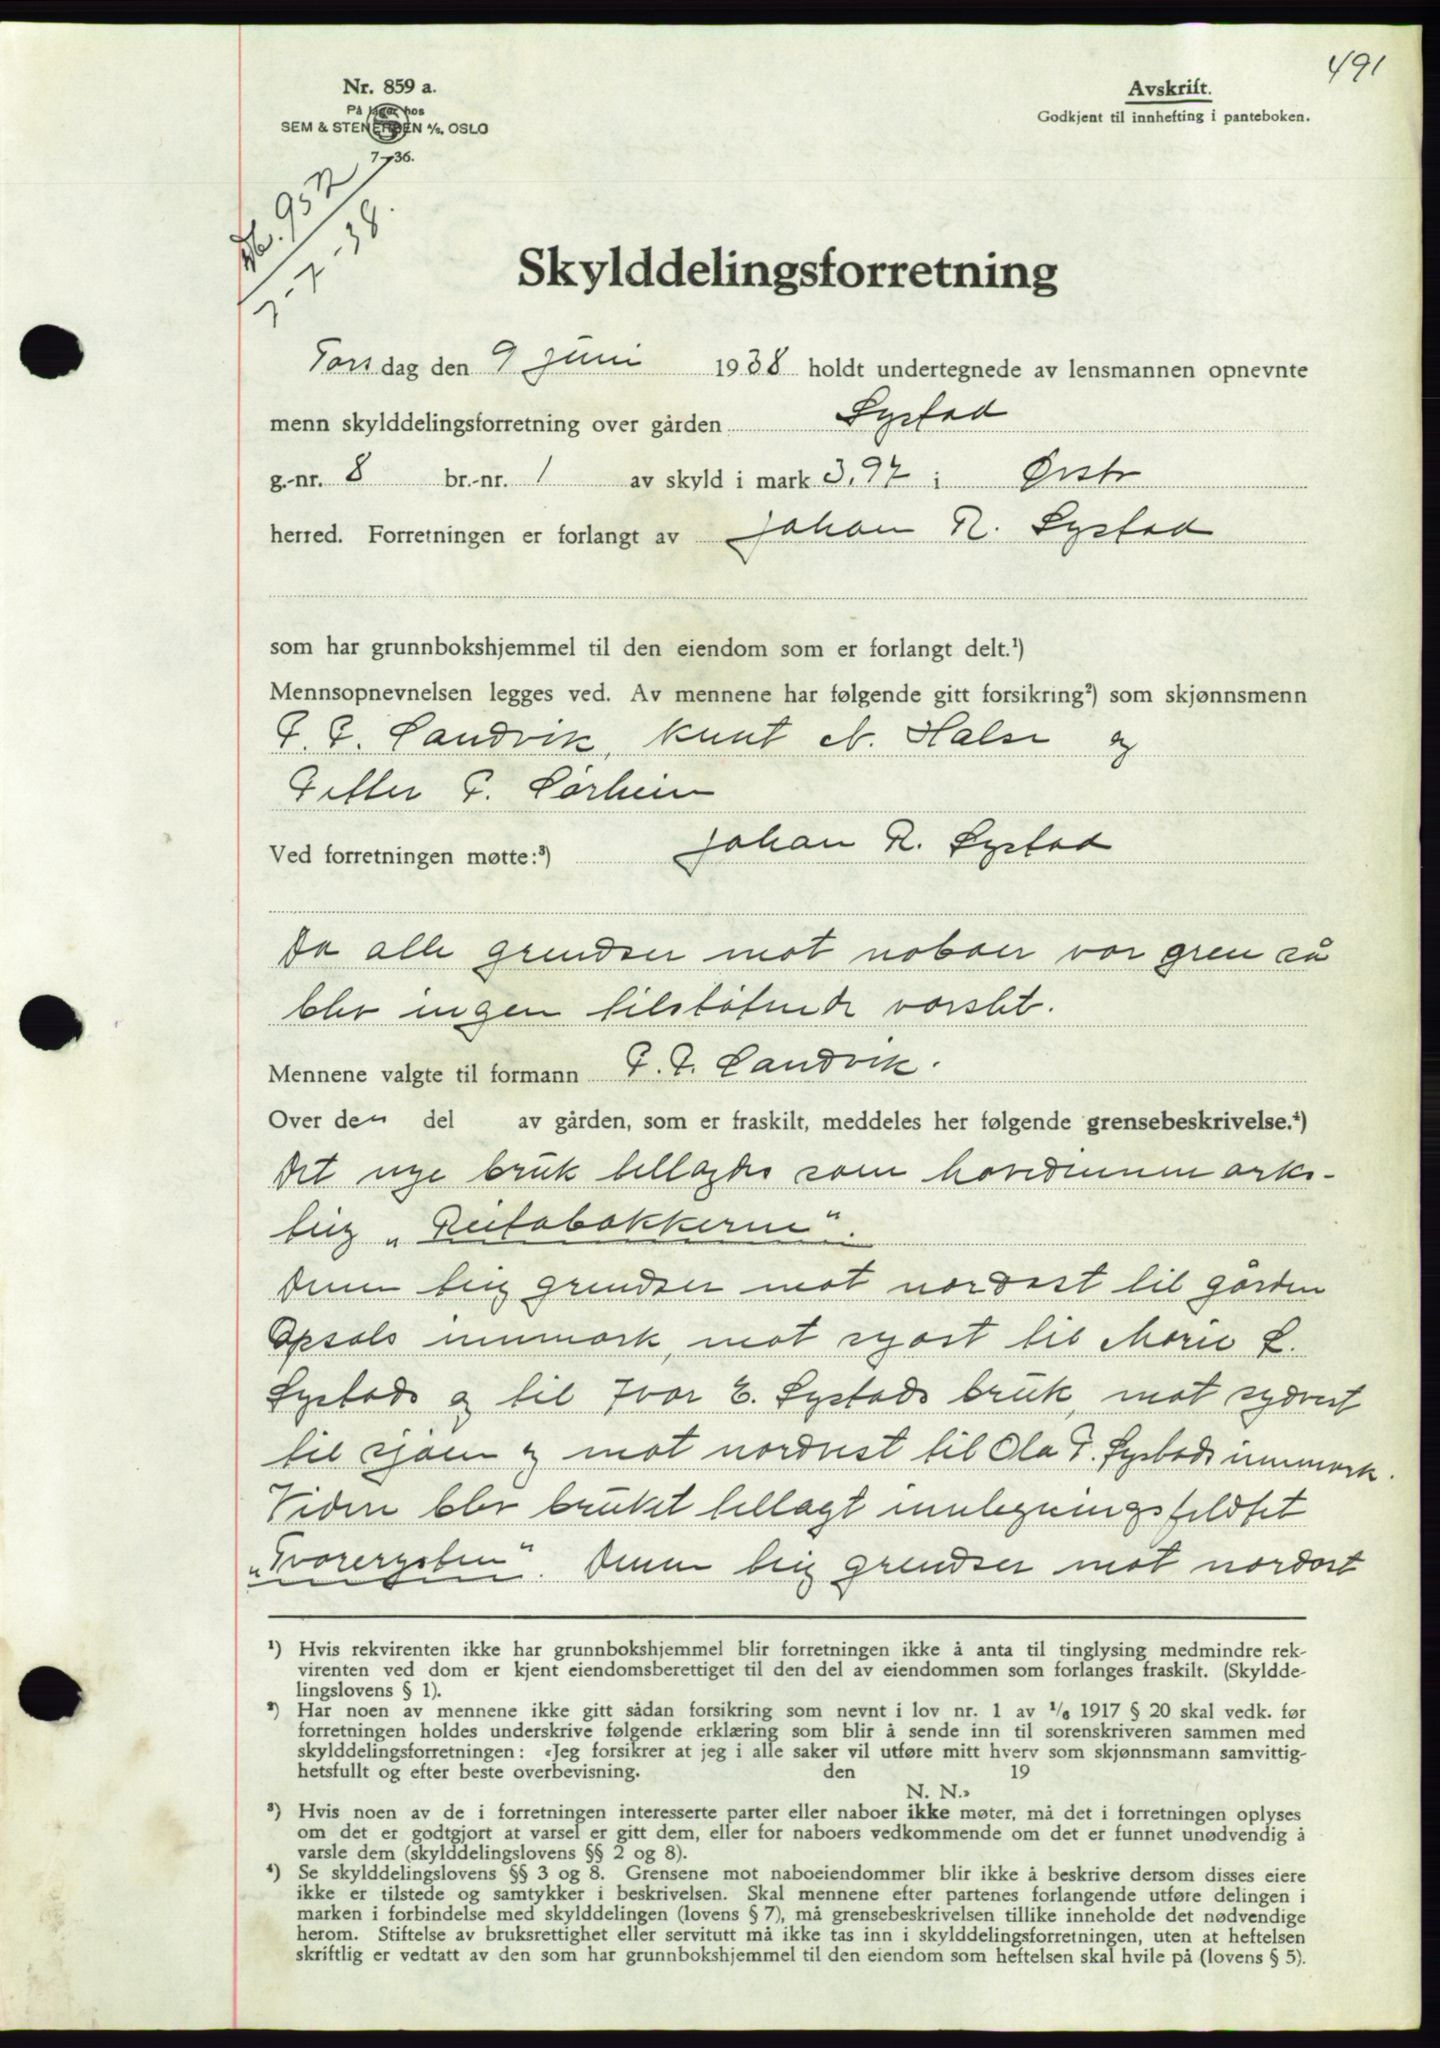 491
Nr. 859 a.
På lager hos
SEM & STENERSEN A/S. OSLO
7—36.
Avskrift.
Godkjent til innhefting i panteboken.
952
7-7-38.
Skylddelingsforretning
Torsdag den 9 juni 1938 holdt undertegnede av lensmannen opnevnte
menn skylddelingsforretning over gården Systad
g.-nr. 8 br.-nr. 1 av skyld i mark 3,97 i Ørsta
herred. Forretningen er forlangt av Johan R. Systad
som har grunnbokshjemmel til den eiendom som er forlangt delt.¹)
Mennsopnevnelsen legges ved. Av mennene har følgende gitt forsikring²) som skjønnsmenn
P. P. Sandvik, Knut N. Halse og
Petter P. Sørheim
Ved forretningen møtte:³) Johan R. Systad
Da alle grendser mot naboer var grei så
blev ingen tilstøtende varslet.
Mennene valgte til formann P. P. Sandvik.
Over den del av gården, som er fraskilt, meddeles her følgende grensebeskrivelse.⁴)
Det nye bruk tillagdes som hovedinnmarks-
teig „Reitabakkerne“.
Denne teig grendser mot nordost til gården
Opsals innmark, mot syost til Marie L.
Systads og til Ivar E. Systads bruk, mot sydvest
til sjøen og mot nordvest til Ola P. Systads innmark.
Videre blev bruket tillagt innlegningsfeldtet
„Tvorerysten“. Denne teig grendser mot nordost
¹) Hvis rekvirenten ikke har grunnbokshjemmel blir forretningen ikke å anta til tinglysing medmindre rek-
virenten ved dom er kjent eiendomsberettiget til den del av eiendommen som forlanges fraskilt. (Skyldde-
lingslovens § 1).
²) Har noen av mennene ikke gitt sådan forsikring som nevnt i lov nr. 1 av ¹/₆ 1917 § 20 skal vedk. før
forretningen holdes underskrive følgende erklæring som blir å sende inn til sorenskriveren sammen med
skylddelingsforretningen: «Jeg forsikrer at jeg i alle saker vil utføre mitt hverv som skjønnsmann samvittig-
hetsfullt og efter beste overbevisning. den 19
N. N.»
³) Hvis noen av de i forretningen interesserte parter eller naboer ikke møter, må det i forretningen oplyses
om det er godtgjort at varsel er gitt dem, eller for naboers vedkommende om det er funnet unødvendig å
varsle dem (skylddelingslovens §§ 2 og 8).
⁴) Se skylddelingslovens §§ 3 og 8. Grensene mot naboeiendommer blir ikke å beskrive dersom disses eiere
ikke er tilstede og samtykker i beskrivelsen. Skal mennene efter partenes forlangende utføre delingen i
marken i forbindelse med skylddelingen (lovens § 7), må grensebeskrivelsen tillike inneholde det nødvendige
herom. Stiftelse av bruksrettighet eller servitutt må ikke tas inn i skylddelingsforretningen, uten at heftelsen
skriftlig er vedtatt av den som har grunnbokshjemmel til den eiendom som heftelsen skal hvile på (lovens § 5).